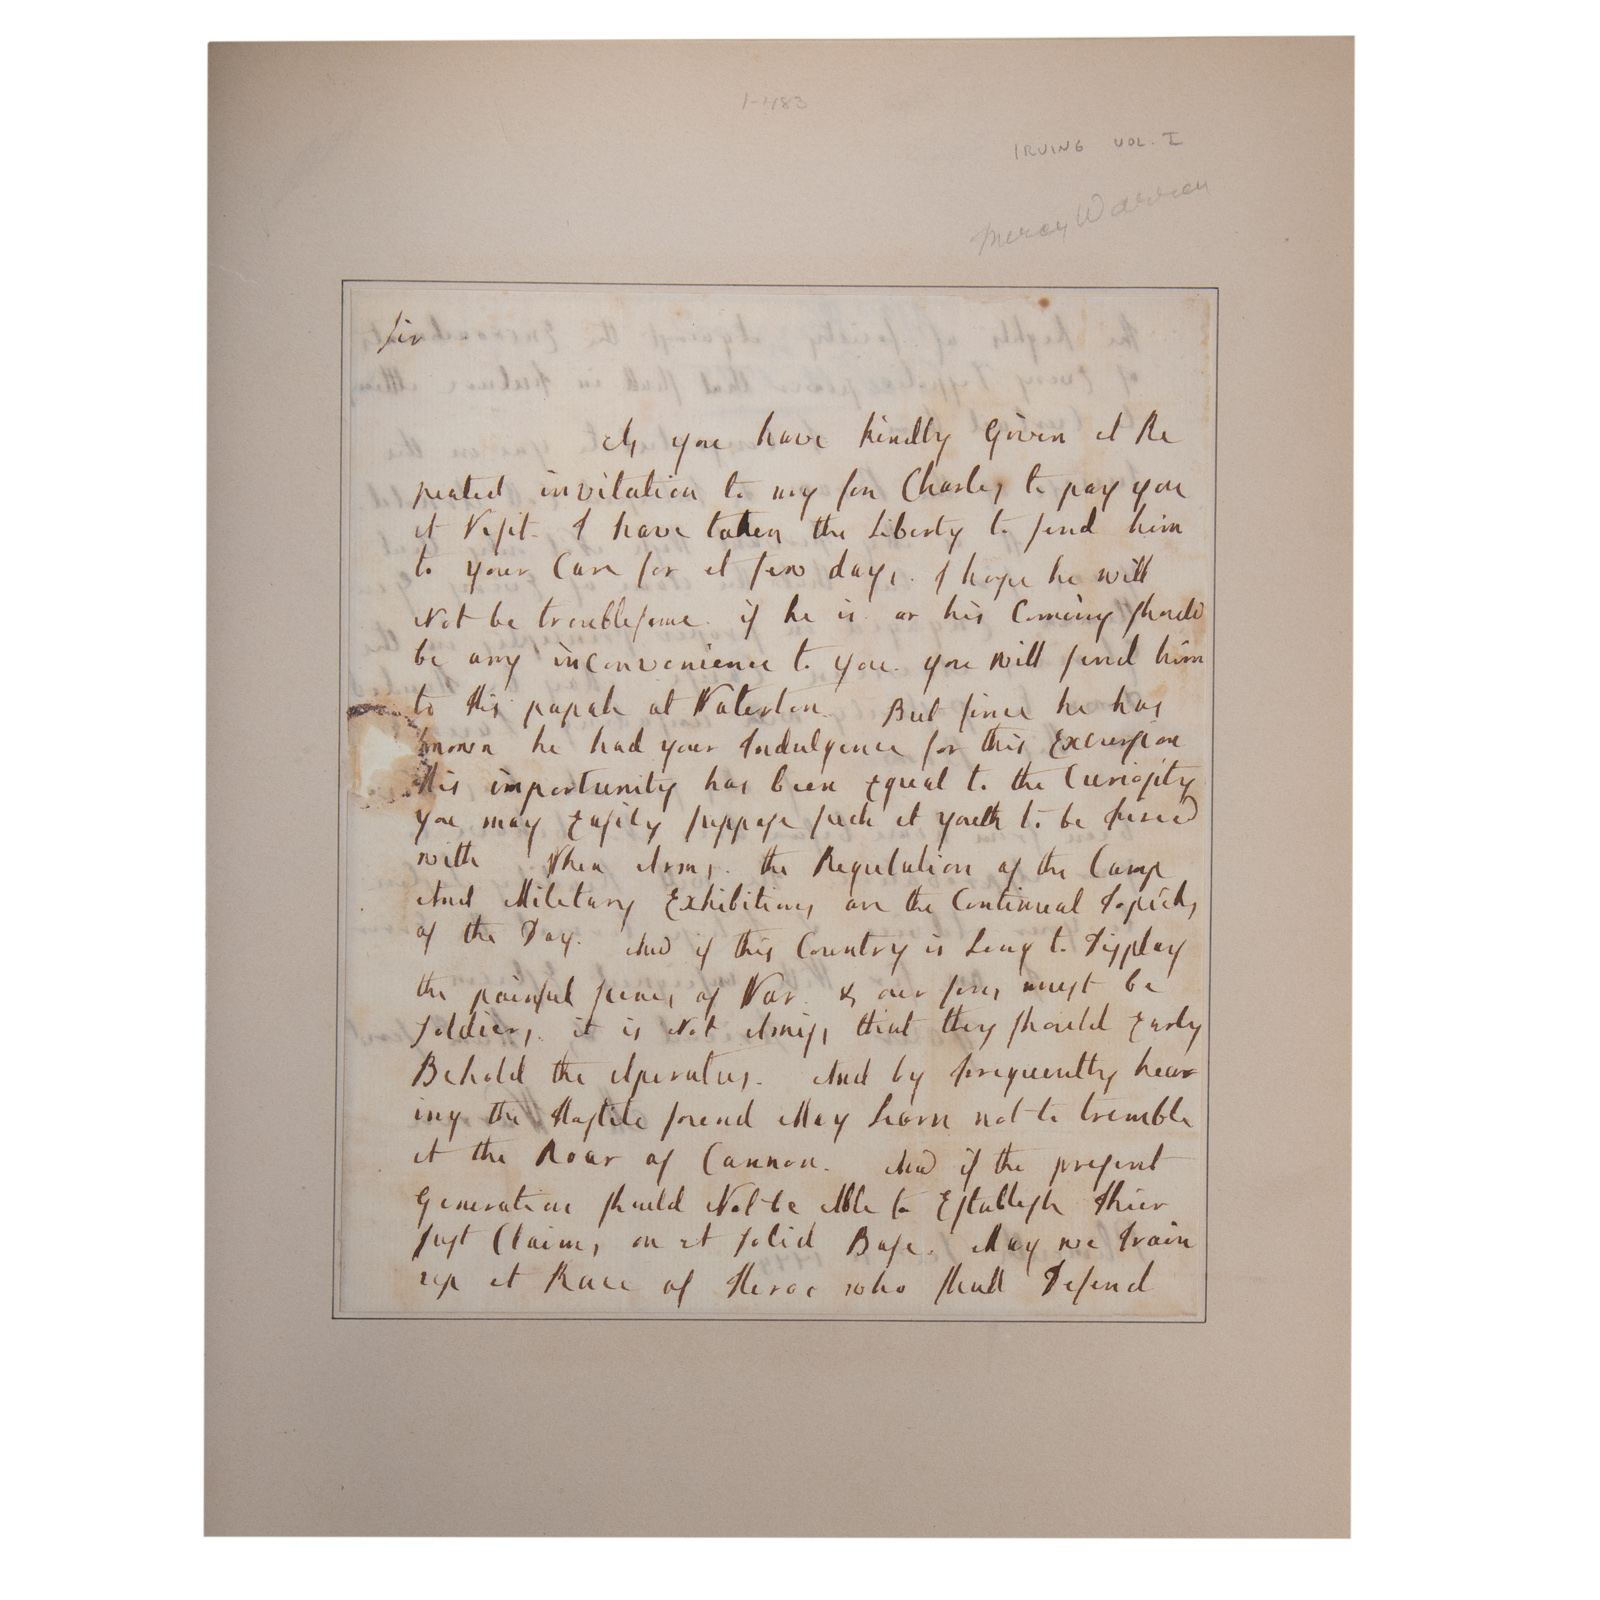 1-483
IRVING VOL. I
Mercy Warren
Sir
As you have kindly Given A Re
peated invitation to my son Charles to pay you
A Visit. I have taken the Liberty to send him
to your Care for A few days. I hope he will
Not be troublesome. if he is or his Coming should
be any inconvenience to you. you will send him
to His papah at Waterton. But since he has
known he had your Indulgence for this Excursion
His importunity has been Equal to the Curiosity
you may Easily suppose such A youth to be fired
with When Arms, the Regulation of the Camp
And Military Exhibitions are the Continual Topicks
of the Day. And if this Country is Long to Display
the painful scenes of War. & our sons must be
Soldiers, it is Not Amiss that they should Early
Behold the Aperatus. And by frequently hear
ing the Hostile sound May Learn not to tremble
at the Roar of Cannon. And if the present
Generation should Not be Able to Establish Thier
just Claims on A solid Base. May we train
up A Race of Heroe who shall Defend